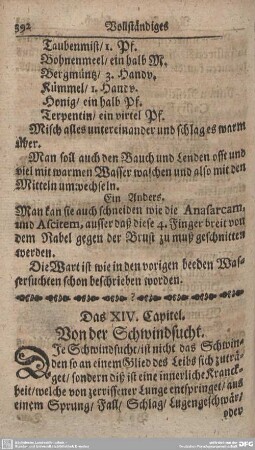 392 Vollständiges
Taubenmist/ 1. Pf.
Bohnenmeel/ ein halb M.
Bergmüntz/ 3. Handv.
Kümmel/ 1. Handv.
Honig/ ein halb Pf.
Terpentin/ ein virtel Pf.
Misch alles untereinander und schlag es warm
über.
Man soll auch den Bauch und Lenden offt und
viel mit warmen Wasser waschen und also mit den
Mitteln umwechseln.
Ein Anders.
Man kan sie auch schneiden wie die Anasarcam,
und Ascitem, ausser daß diese 4. Finger breit von
dem Nabel gegen der Brust zu muß geschnitten
werden.
Die Wart ist wie in den vorigen beeden Was-
sersuchten schon beschrieben worden.
Das XIV. Capitel.
Von der Schwindsucht.
DIe Schwindsucht/ ist nicht das Schwin-
den so an einem Glied des Leibs sich zuträ-
get/ sondern diß ist eine innerliche Kranck-
heit/ welche von zerrissener Lunge entspringet/ aus
einem Sprung/ Fall/ Schlag/ Lugengeschwär/
oder